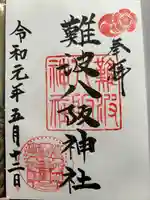 奉拝
難波八阪神社
令和元年五月十二日